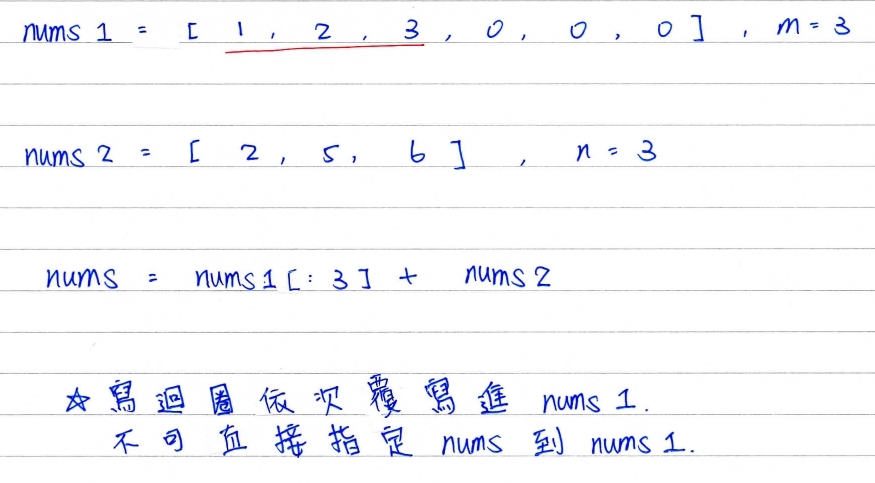 nums 1 = [ 1 , 2 , 3 , 0 , 0 , 0 ] , m = 3
nums 2 = [ 2 , 5 , 6 ] , n = 3
nums = nums 1 [ : 3 ] + nums 2
☆ 寫迴圈依次覆寫進 nums 1.
不可直接指定 nums 到 nums 1.